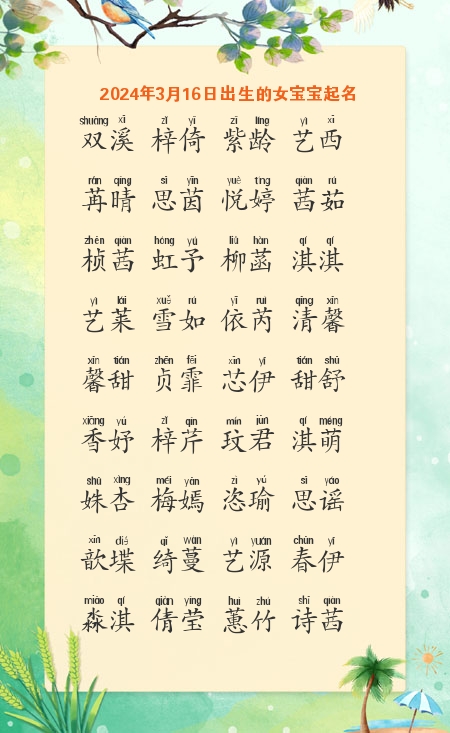 2024年3月16日出生的女宝宝起名
shuāng xī zǐ yǐ zǐ líng yì xī
双溪 梓倚 紫龄 艺西
rǎn qíng sī yīn yuè tíng qiàn rú
苒晴 思茵 悦婷 茜茹
zhēn qiàn hóng yú liǔ hàn qí qí
桢茜 虹予 柳菡 淇淇
yì lái xuě rú yī ruì qīng xīn
艺莱 雪如 依芮 清馨
xīn tián zhēn fēi xīn yī tián shū
馨甜 贞霏 芯伊 甜舒
xiāng yú zǐ qín mín jūn qí méng
香妤 梓芹 玟君 淇萌
shū xìng méi yān zì yú sī yáo
姝杏 梅嫣 恣瑜 思谣
xīn dié qǐ wàn yì yuán chūn yī
歆堞 绮蔓 艺源 春伊
miǎo qí qiàn yíng huì zhú shī qiàn
淼淇 倩莹 蕙竹 诗茜